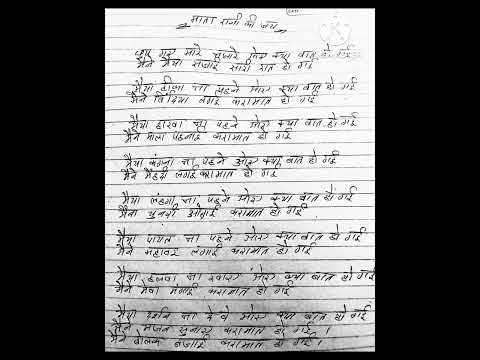 माता रानी की जय
थक गए सारे पुजारी ऐसा क्या बात हो गई
मैंने मैया सजाई सारी रात हो गई
मैया टीका ना पहने ओरु क्या बात हो गई
मैंने बिंदिया लगाई करामात हो गई
मैया हरवा ना पहने ओरु क्या बात हो गई
मैंने माला पहनाई करामात हो गई
मैया कंगना ना पहने ओरु क्या बात हो गई
मैंने मेंहदी लगाई करामात हो गई
मैया लहंगा ना पहने ओरु क्या बात हो गई
मैंने चुनरी ओढाई करामात हो गई
मैया पायल ना पहने ओरु क्या बात हो गई
मैंने महावर लगाई करामात हो गई
मैया हलवा ना खाए ओरु क्या बात हो गई
मैंने मेवा मंगाई करामात हो गई
मैया दर्शन ना देवे ओरु क्या बात हो गई
मैंने भजन सुनाए करामात हो गई ।
मैंने ढोलक बजाई करामात हो गई